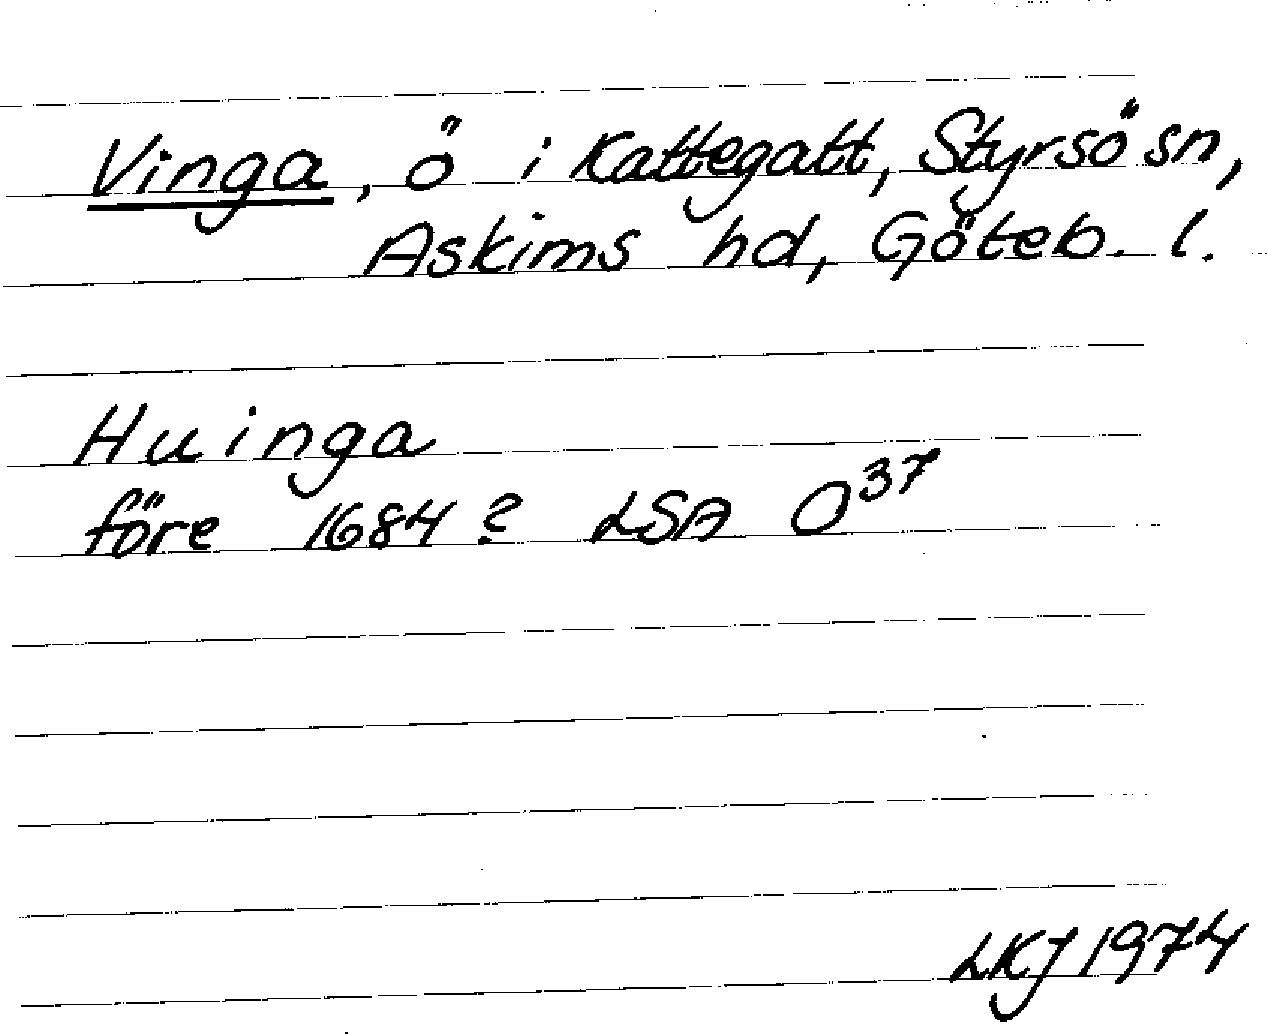 Vinga, ö i Kattegatt, Styrsö sn,
Askims hd, Göteb. l.
Huinga
före 1684? LSA O37
LKJ 1974